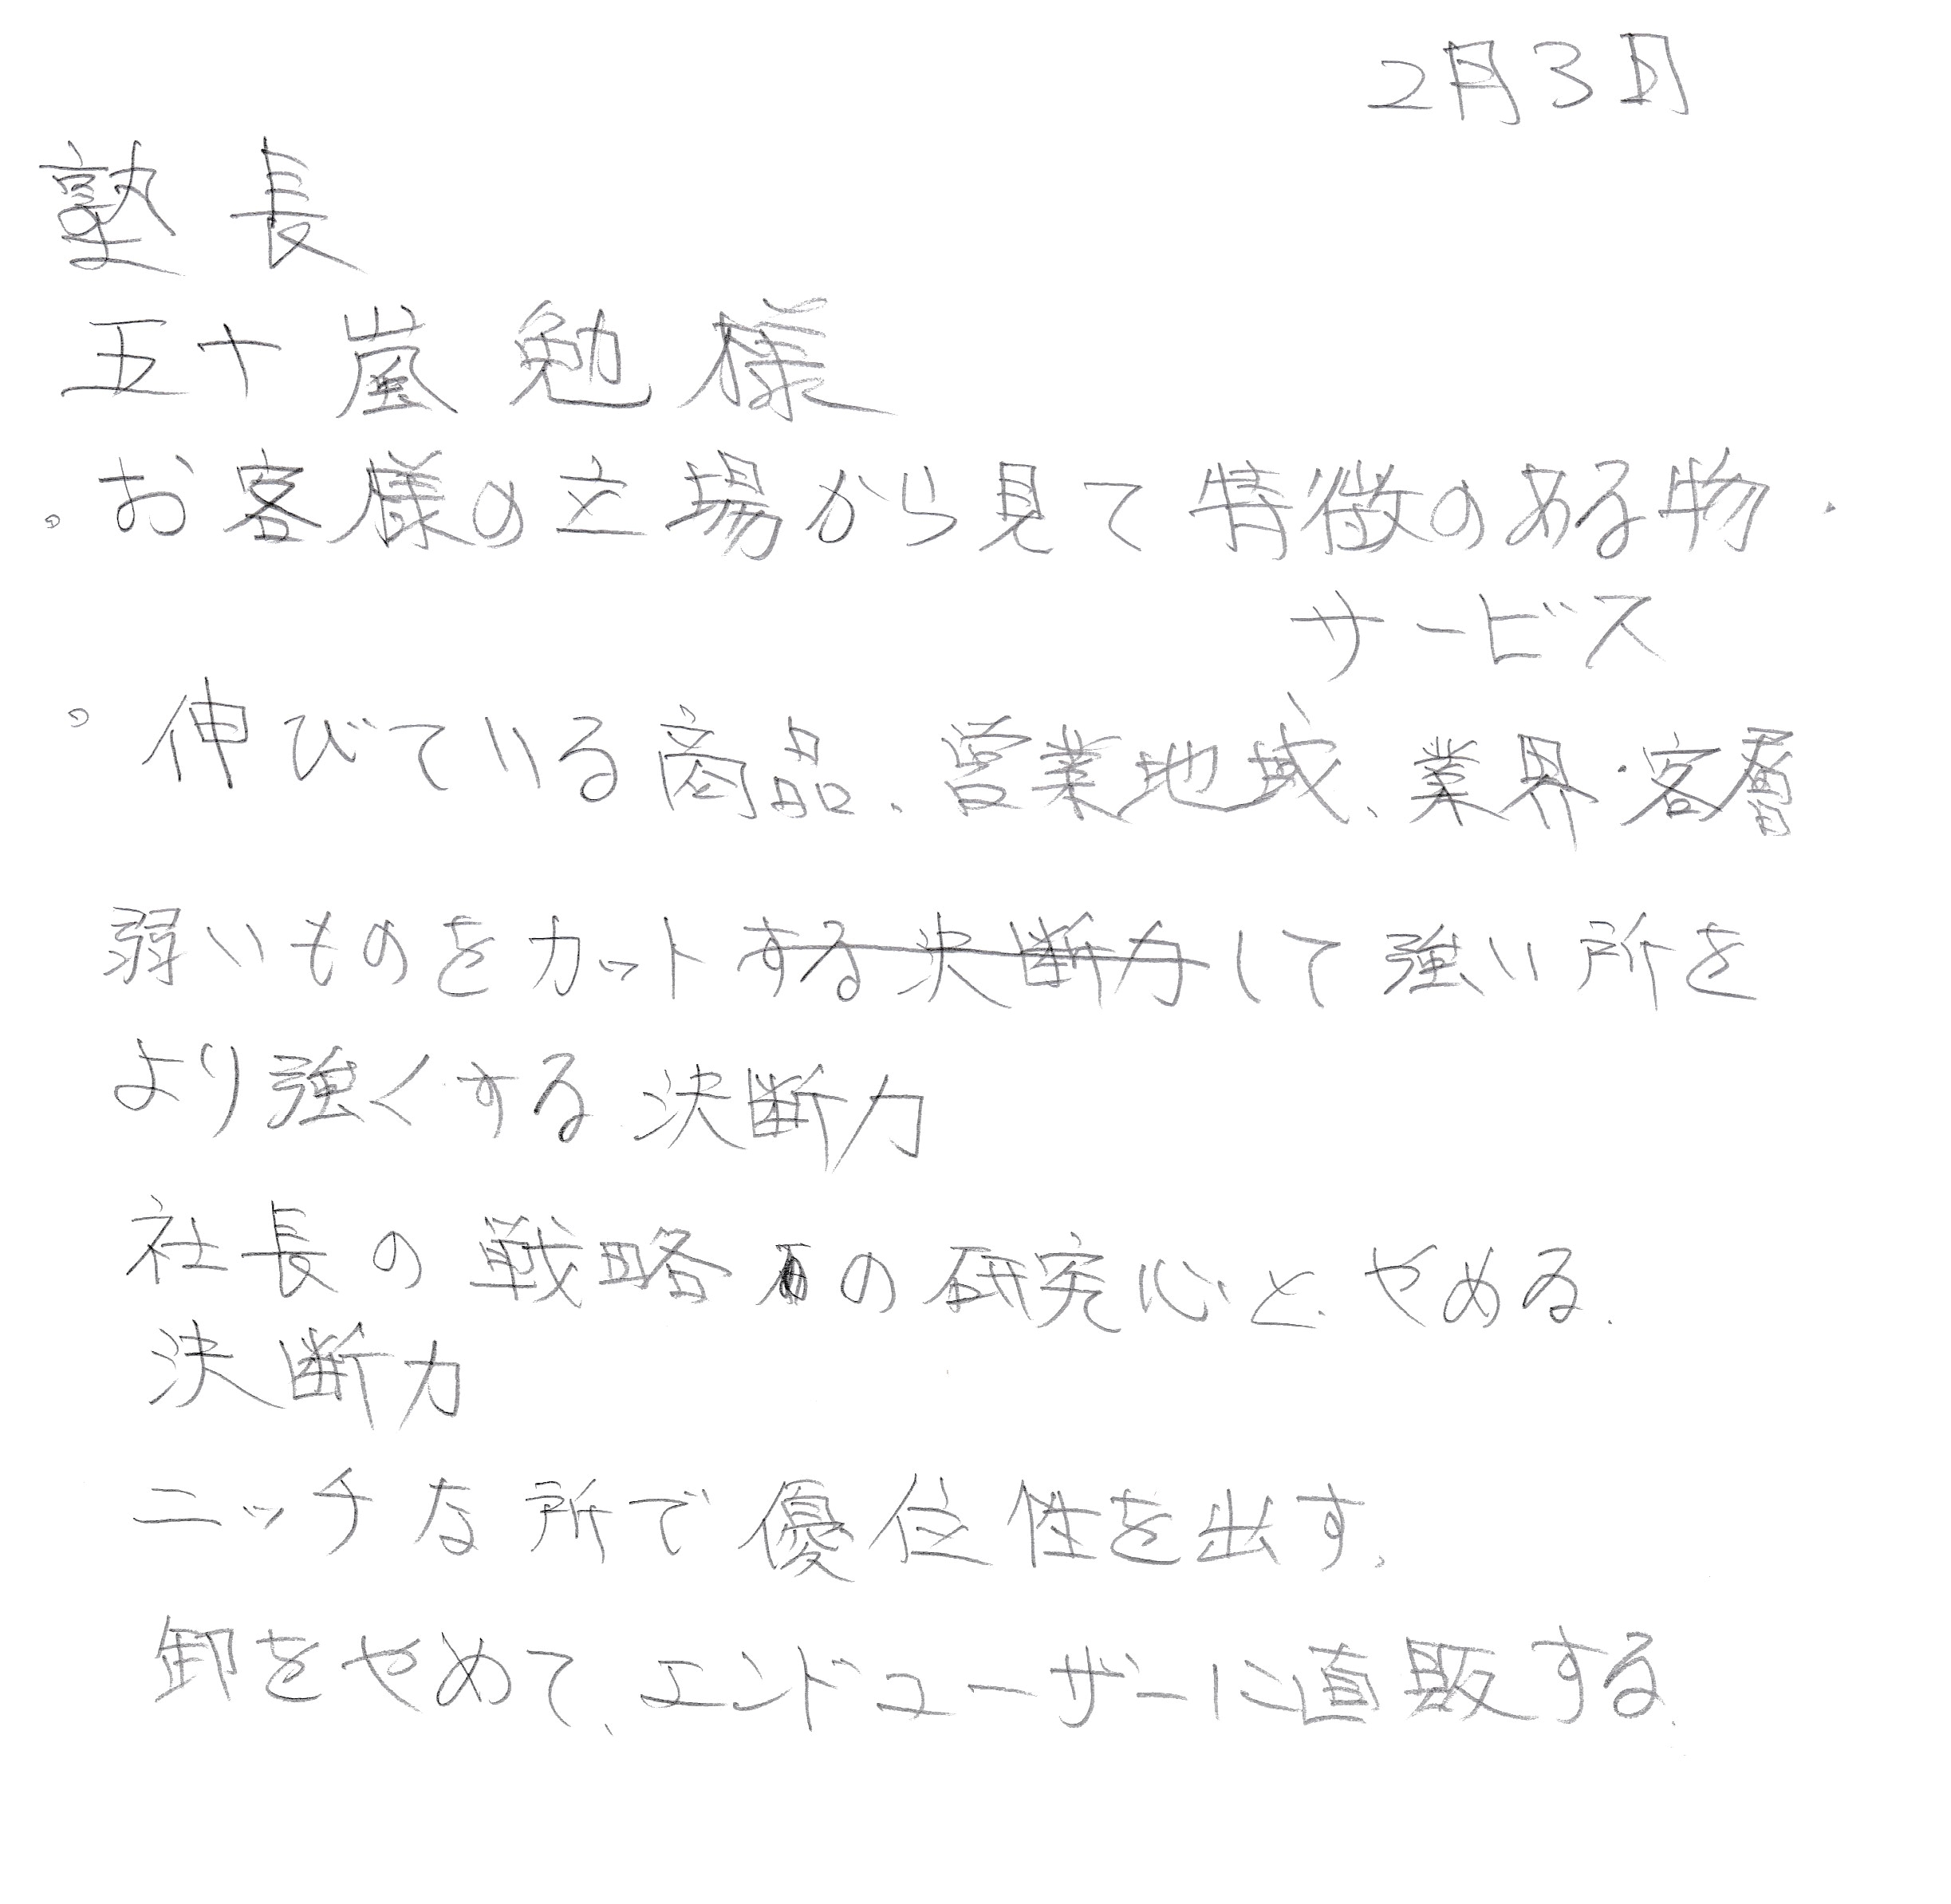 2月3日
塾長
五十嵐勉様
。お客様の立場から見て特徴のある物・
サービス
。伸びている商品、営業地域、業界・客層
弱いものをカットする決断力して強い所を
より強くする決断力
社長の戦略の研究心と、やめる、
決断力
ニッチな所で優位性を出す、
卸をやめて、エンドユーザーに直販する、